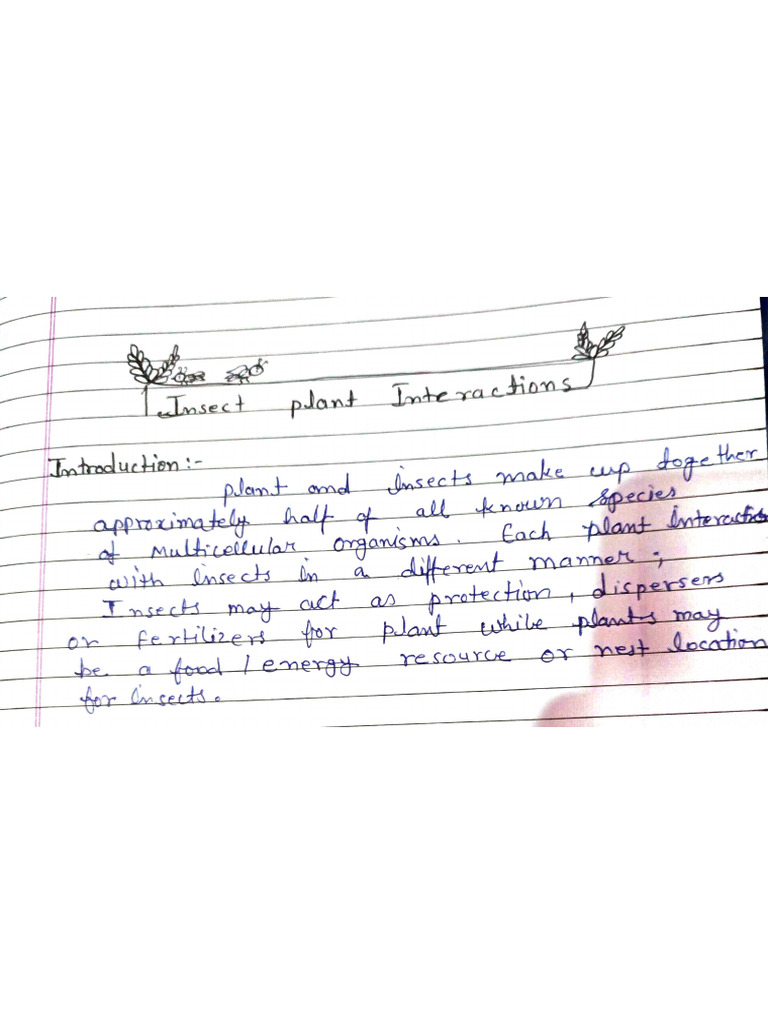 Insect plant Interactions
Introduction:-
plant and insects make up together
approximately half of all known species
of Multicellular organisms. Each plant Interaction
with insects in a different manner;
Insects may act as protection, dispersers
or fertilizers for plant while plants may
be a food / energy resource or nest location
for insects.